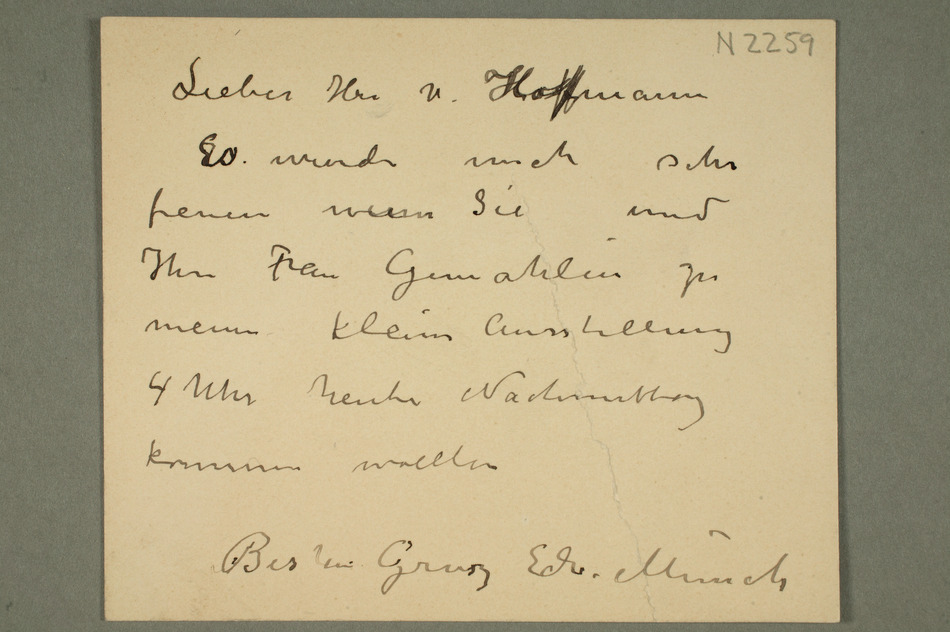 N 2259
Lieber Herr v. Hoffmann
Es würde mich sehr
freuen wenn Sie und
Ihre Frau Gemahlin zu
meiner kleine Ausstellung
4 Uhr heute Nachmittag
kommen wollen
Besten Grusz Edv. Munch